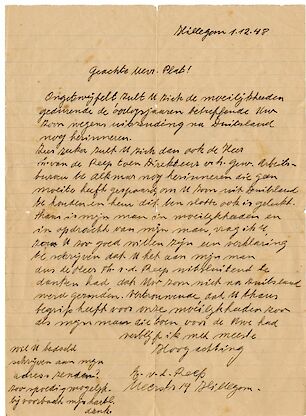 Hillegom 1.12.48
Geachte Mevr. Plat!
Ongetwijfelt zult U zich de moeilijkheden
gedurende de oorlogsjaren betreffende Uw
zoon wegens uitzending na Duitsland
nog herinneren.
Dus zeker zult U zich dan ook de Heer
v. de Reep toen Directeur v.h. gew. Arbeids-
bureau te Alkmar nog herinneren die geen
moeite heeft gespaard om U zoon uit Duitsland
te houden en hem dit ten slotte ook is gelukt.
Thans is mijn man in moeilijkheden en
in opdracht van mijn man, vraag ik U
zou U zoo goed willen zijn een verklaring
te schrijven dat U het aan mijn man
dus de Heer Th. v.d. Reep uitsluitend te
danken had, dat Uw zoon niet na Duitsland
werd gezonden. Vertrouwende dat U thans
begrip heeft voor onze moeilijkheden zoo
als mijn man die toen voor de Uwe had
verblijf ik met meeste
Hoogachting
v.d. Reep
Hillegom.
wil U bedoeld
schrijven aan mijn
adres zenden
zoo spoedig mogelijk
bij voorbaat mijn hartel.
dank